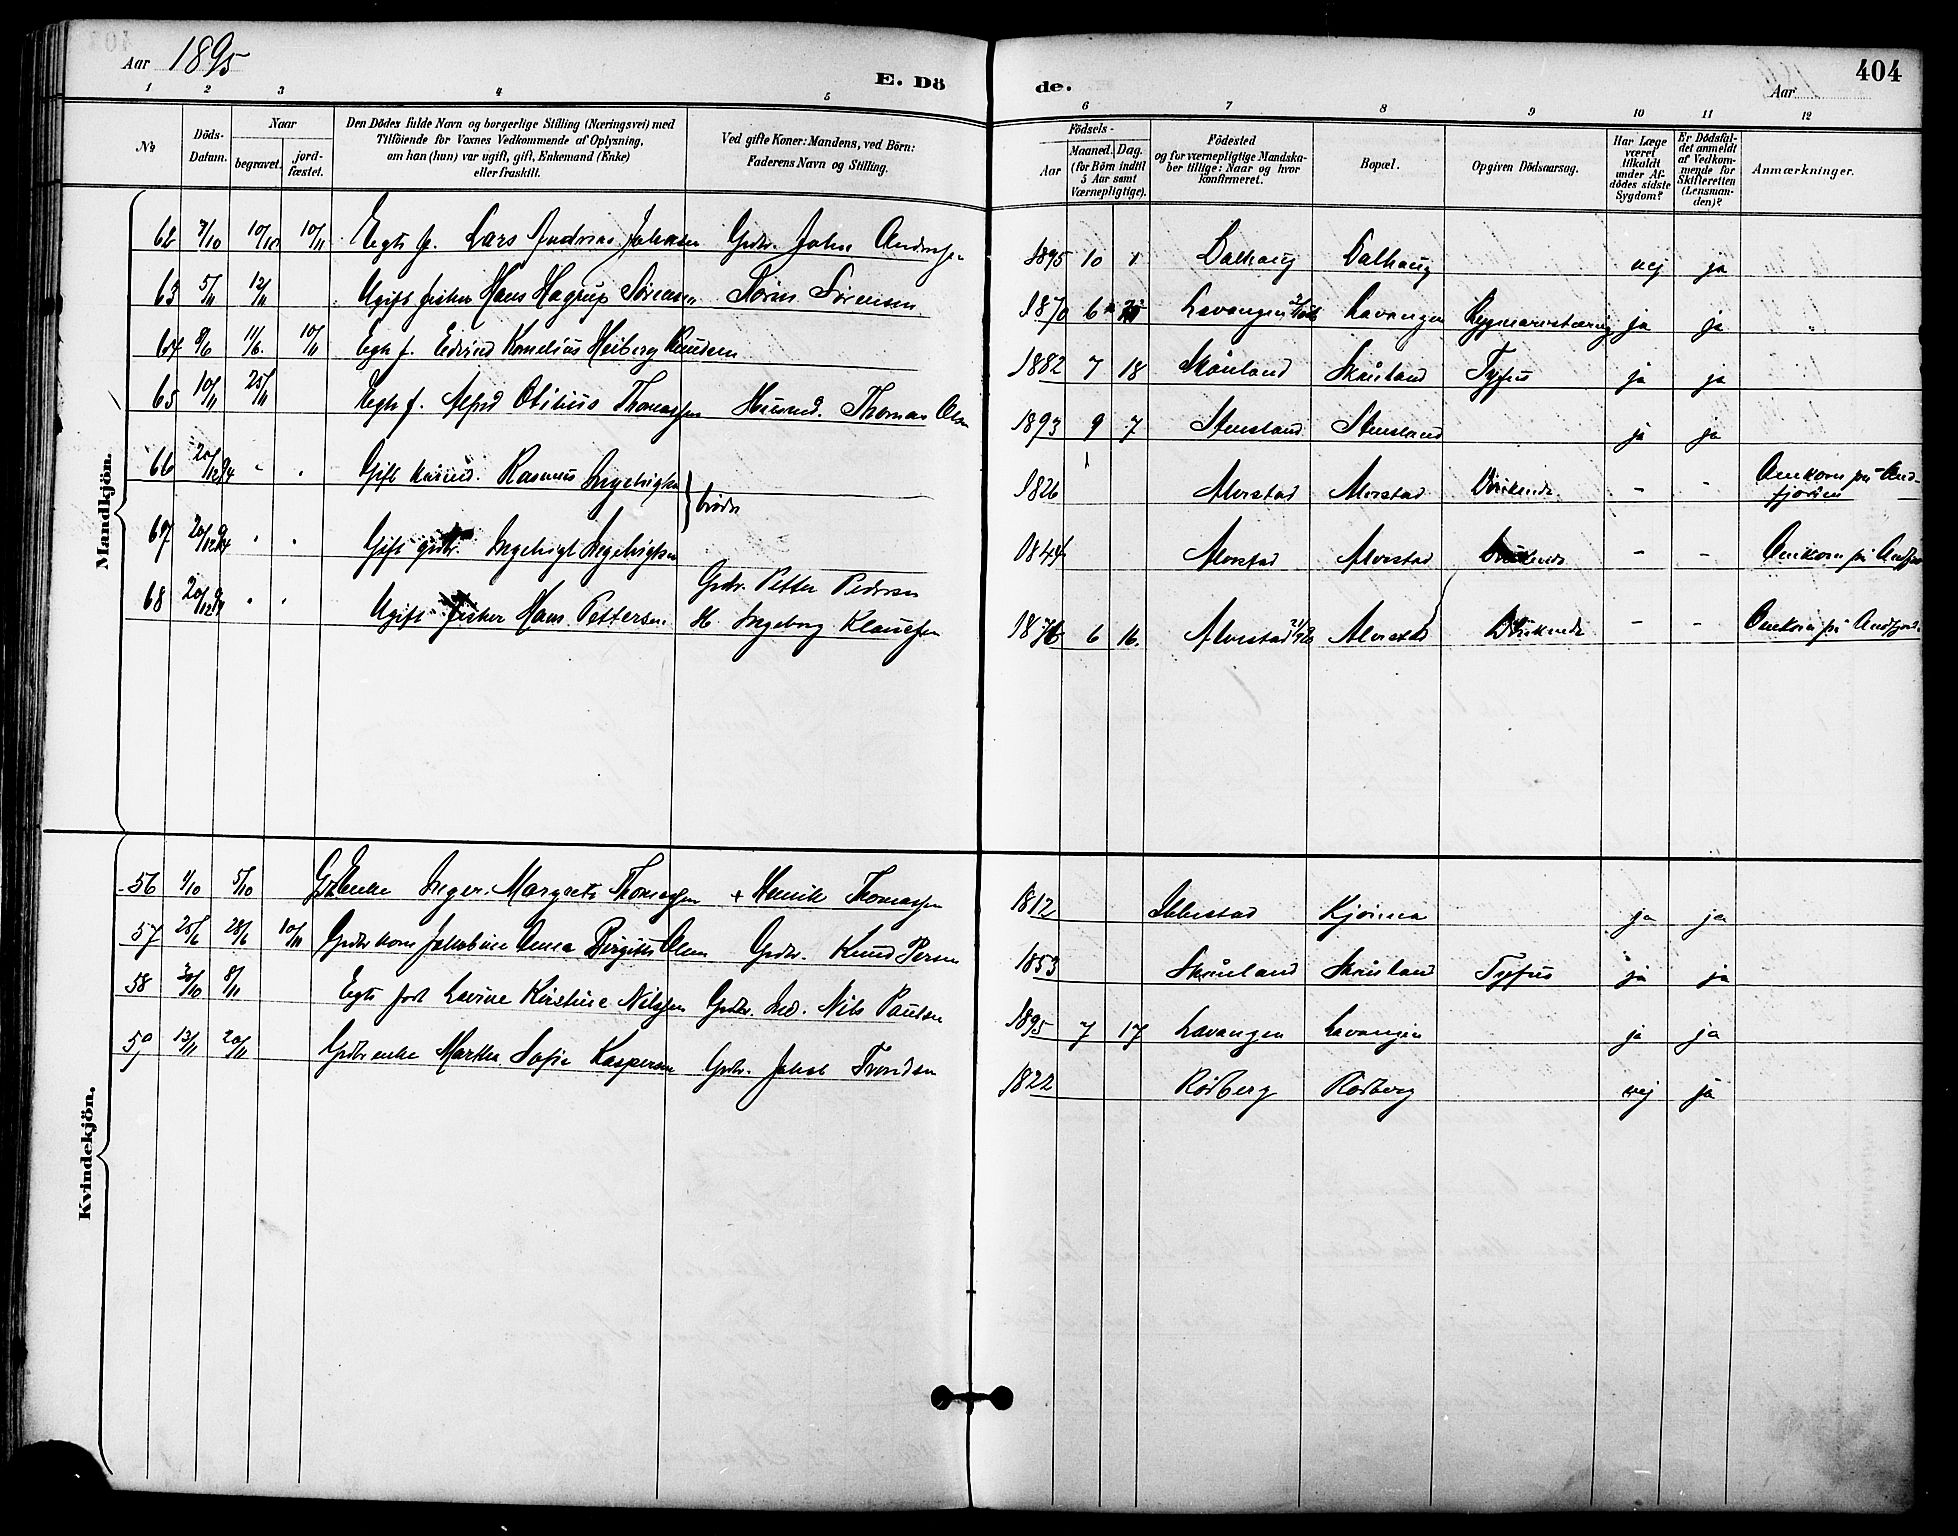 Aar 1895
E. Döde.
Aar
404
1 2 3 4 5 6 7 8 9 10 11 12
No
Döds-Datum.
Naar
begravet.
jord-fæstet.
Den Dödes fulde Navn og borgerlige Stilling (Næringsvei) med
Tilföiende for Voxnes Vedkommende af Oplysning,
om han (hun) var ugift, gift, Enkemand (Enke)
eller fraskilt.
Ved gifte Koner: Mandens, ved Börn:
Faderens Navn og Stilling.
Födsels-
Aar
Maaned. Dag.
(for Börn indtil
5 Aar samt
Værnepligtige).
Födested
og for værnepligtige Mandska-
ber tillige: Naar og hvor
konfirmeret.
Bopæl.
Opgiven Dödsaarsag.
Har Læge
været
tilkaldt
under Af-
dödes sidste
Sygdom?
Er Dödsfal-
det anmeldt
af Vedkom-
mende for
Skifteretten
(Lensman-
den)?
Anmærkninger.
Mandkjön.
62 7/10 10/10 10/11 Egte f. Lars Andreas Johnsen Grdbr. John Andersen 1895 10 1 Dalhaug Dalhaug nej ja
63 5/11 12/11 Ugift fisker Hans Hagrup Sørensen Sørens Sørensen 1870 6 Lavangen Lavangen ja ja
64 8/6 11/6. 10/11 Egte f. Edvind Kornelius Heiberg Knudsen 1882 7 18 Skånland Skånland Tyfus ja ja
65 10/11 25/11 Uegte f. Alfred Otilius Thomassen Husmd. Thomas Olsen 1893 9 7 Stensland Stensland ja ja
66 20/12 94 " " Gift husmd. Rasmus Ingebrigtsen } brødre 1826 Alvestad Alvestad Druknede - - Omkom på Andfjorden
67 20/12 94 " " Gift grdbr. Ingebrigt Ingebrigtsen 1844 Alvestad Alvestad Druknede - - Omkom på Andfjor
68 20/12 94 " " Ugift fisker Hans Pettersen Grdbr. Petter Pedersen H. Ingeborg Klausen 1876 6 16. Alvestad Alvestad Druknede - - Omkom på Andfjord.
Kvindekjön.
56 1/10 5/10 Enke Inger Margrete Thomassen + Henrik Thomassen 1812 Ibbestad Kjønna ja ja
57 25/6 28/6 10/11 Grdbr kone Jakobine Anna Birgitte Olsen Grdbr. Knud Persen 1853 Skånland Skånland Tyfus ja ja
58 30/10 8/11 Egte født Lovine Kirstine Nilssen Grdbr. Ind. Nils Paulsen 1895 7 17 Lavangen Lavangen ja ja
59 13/11 20/11 Grdbr enke Martha Sofie Kaspersen Grdbr. Jakob Trondsen 1822 Rødberg Rødberg nej ja